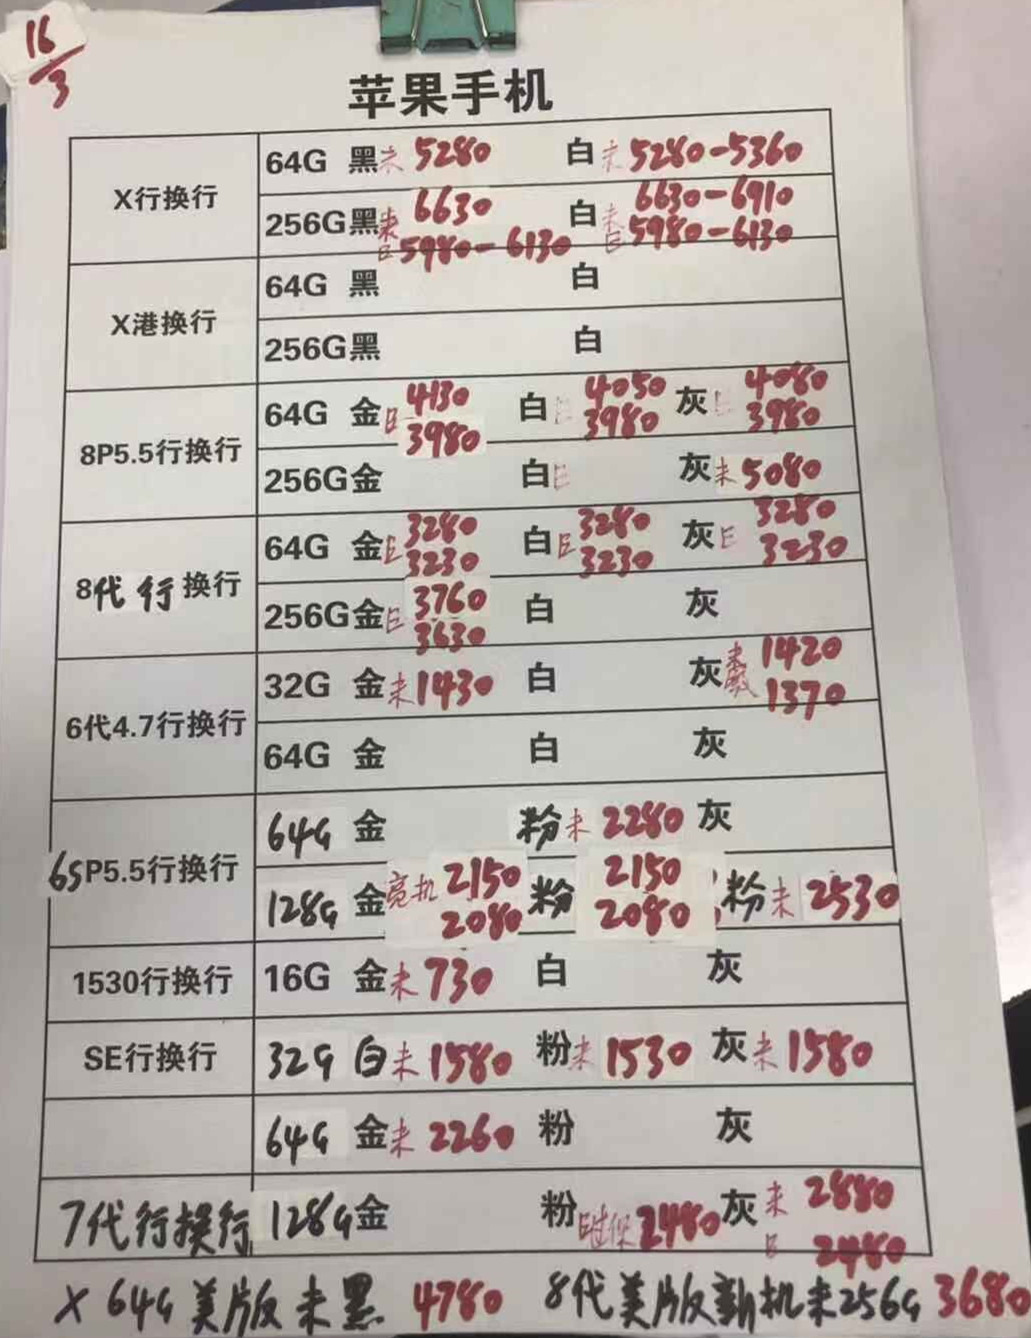 16/3
苹果手机
X行换行
64G 黑未 5280 白未 5280-5360
256G黑未 6630 白未 6630-6910
已5980-6130 已5980-6130
X港换行
64G 黑 白
256G黑 白
8P5.5行换行
64G 金已 4130 白已 4050 灰已 4080
3980 3980 3980
256G金 白已 灰未5080
8代行换行
64G 金已3280 白已3280 灰已 3280
3230 3230 3230
256G金已 3760 白 灰
3630
6代4.7行换行
32G 金未1430 白 灰未 1420
1370
64G 金 白 灰
6SP5.5行换行
64G 金 粉未 2280 灰
128G 金亮机 2150 粉 2150 粉未 2530
2080 2080
1530行换行
16G 金未730 白 灰
SE行换行
32G 白未 1580 粉未 1530 灰未1580
64G 金未 2260 粉 灰
7代行换行
128G金 粉已过保2480 灰未 2880
已 2480
X 64G 美版未黑 4780 8代美版新机未256G 3680